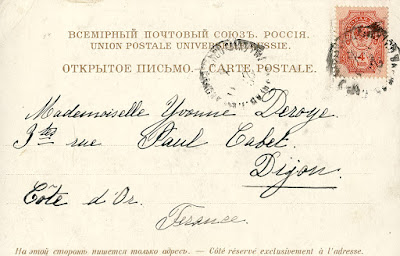 ВСЕМІРНЫЙ ПОЧТОВЫЙ СОЮЗЪ. РОССІЯ.
UNION POSTALE UNIVERSELLE. RUSSIE.
ОТКРЫТОЕ ПИСЬМО. — CARTE POSTALE.
Mademoiselle Yvonne Deroye.
3 rue Paul Cabet.
Dijon.
Côte d'Or.
France.
На этой сторонѣ пишется только адресъ. — Côté réservé exclusivement à l'adresse.